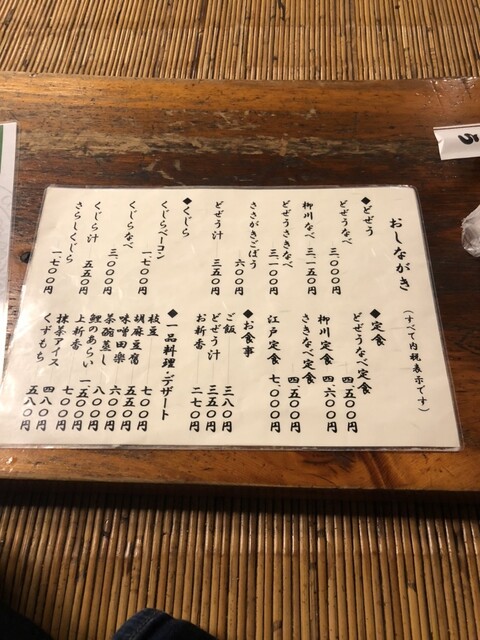 おしながき (すべて内税表示です)
◆どぜう
どぜうなべ 三、〇〇〇円
柳川なべ 三、一五〇円
どぜうさきなべ 三、一〇〇円
ささがきごぼう 六〇〇円
どぜう汁 三五〇円
◆くじら
くじらベーコン 一、七〇〇円
くじらなべ 三、〇〇〇円
くじら汁 五五〇円
さらしくじら 一、七〇〇円
◆定食
どぜうなべ定食 四、五〇〇円
柳川定食 四、六〇〇円
さきなべ定食 四、五〇〇円
江戸定食 七、〇〇〇円
◆お食事
ご飯 三八〇円
どぜう汁 三五〇円
お新香 二七〇円
◆一品料理・デザート
枝豆 七〇〇円
胡麻豆腐 五五〇円
味噌田楽 六〇〇円
茶碗蒸し 八〇〇円
鯉のあらい 一、五〇〇円
上新香 七〇〇円
抹茶アイス 四八〇円
くずもち 五八〇円
ら